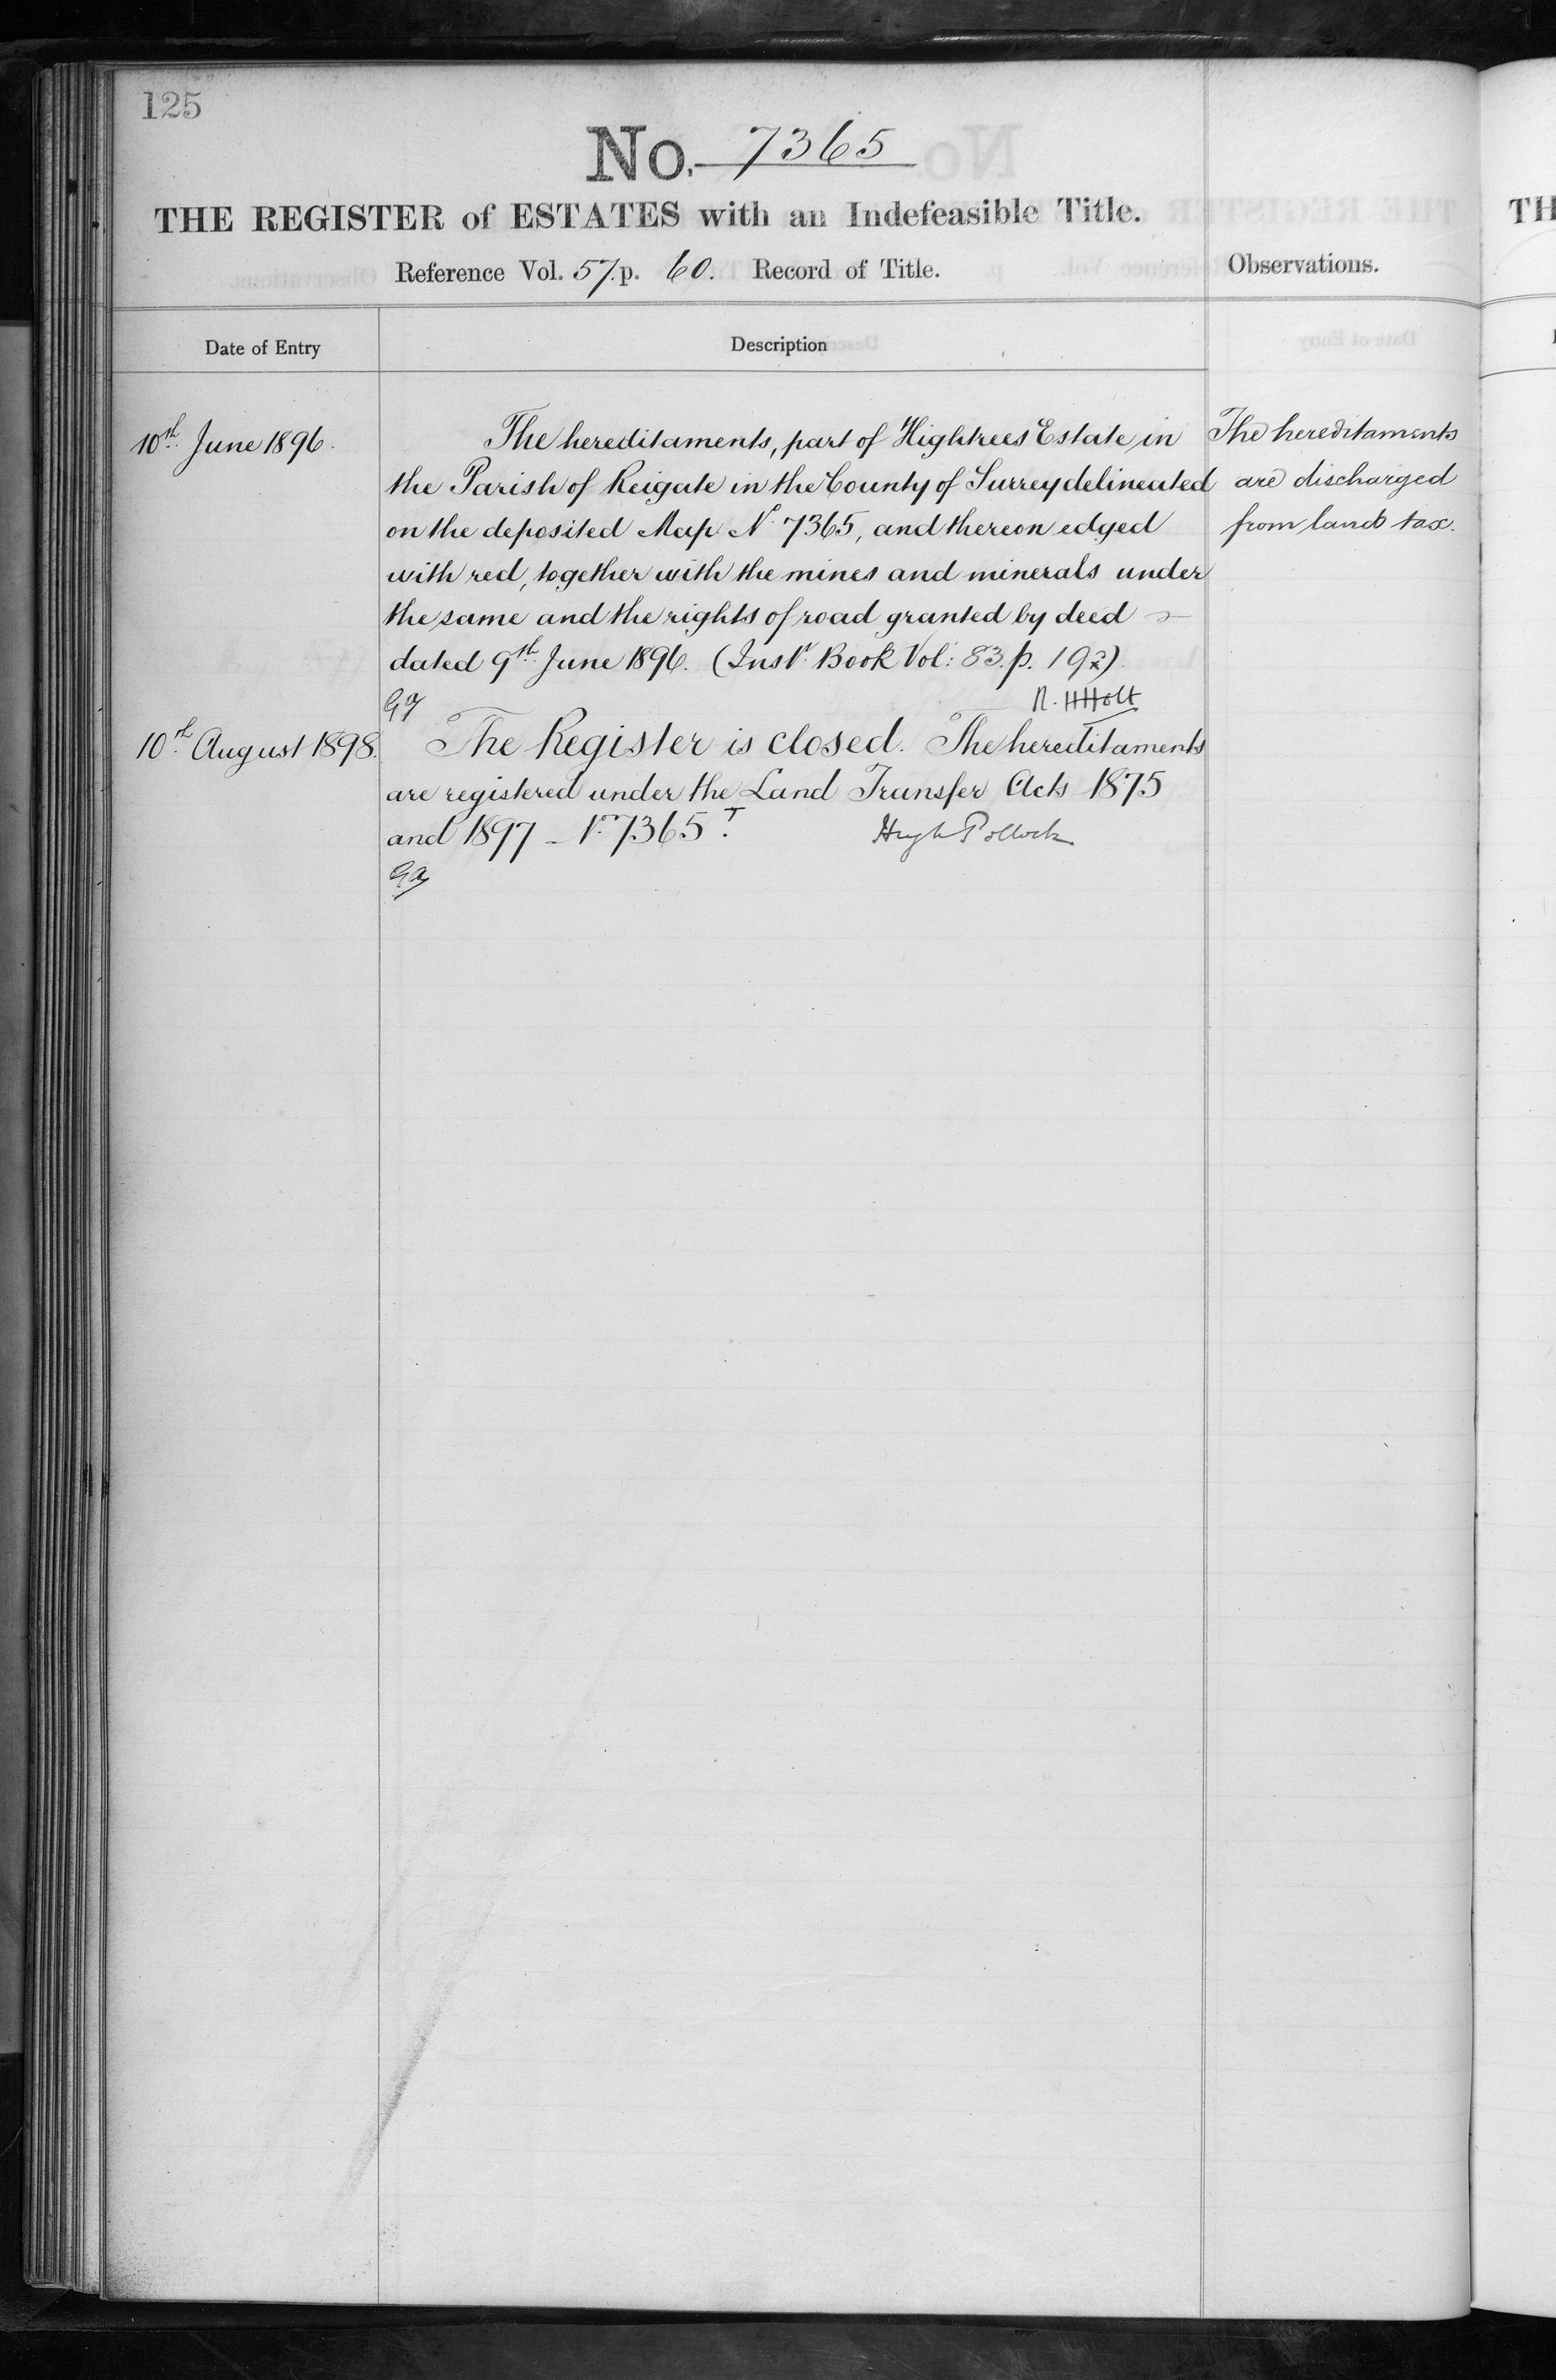 125
No. 7365
THE REGISTER of ESTATES with an Indefeasible Title.
Reference Vol. 57. p. 60. Record of Title.
Observations.
Date of Entry
Description
10th June 1896.
The hereditaments, part of Hightrees Estate in
the Parish of Reigate in the County of Surrey delineated
on the deposited Map No 7365, and thereon edged
with red, together with the mines and minerals under
the same and the rights of road granted by deed
dated 9th June 1896. (Inst. Book Vol: 83. p. 192).
R. H Holt
The hereditaments
are discharged
from land tax.
10th August 1898.
The Register is closed. The hereditaments
are registered under the Land Transfer Acts 1875
and 1897 - No 7365T.
Hugh Pollock
TH